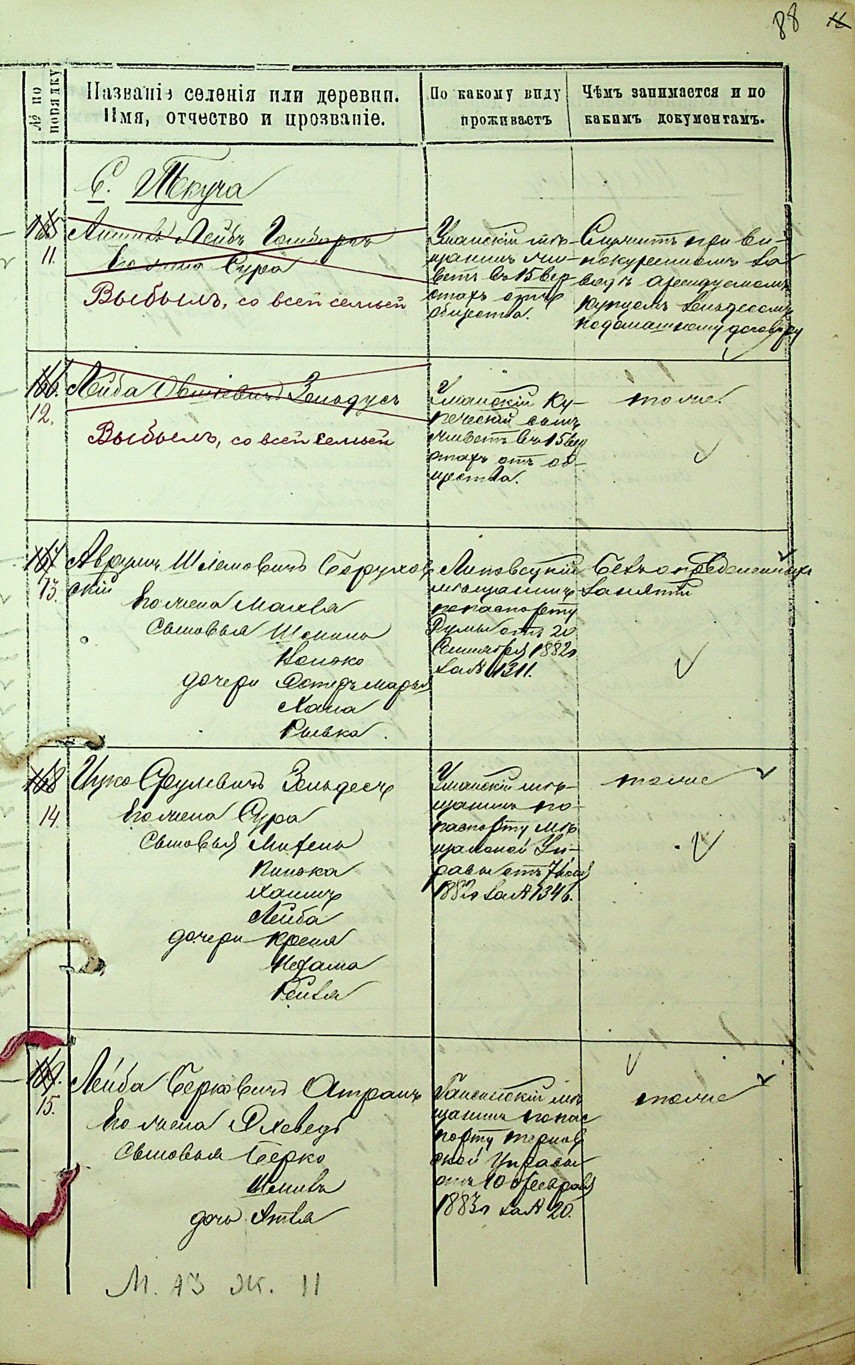 88
№ по порядку
Названіе селенія или деревни.
Имя, отчество и прозваніе.
По какому виду
проживаетъ
Чѣмъ занимается и по
какимъ документамъ.
С. Ткуча
165
11.
Лейбъ
Его жена Сура
Выбылъ, со всей семьей
Уманскій мѣ-
щанинъ жи-
ветъ въ 15 вер
стахъ отъ
общества.
Служитъ при ви-
нокуренномъ за
водѣ арендуемомъ
купцомъ Зельдесомъ
по домашнему договору
166.
12.
Лейба Зельдусъ
Выбылъ, со всей семьей
Уманскій ку-
печескій сынъ
живетъ въ 15 вер
стахъ отъ об-
щества.
тоже.
167
13.
Аврумъ Шлемовичъ Берухов
скій
Его жена Малвя
Сыновья
дочери
Хана
Рывка
Липовецкій
мѣщанинъ
по паспорту
Думы отъ 20
Сентября 1882 г
за № 1311.
Безъ опредѣленныхъ
занятій
168
14.
Ицко Срулевичъ Зельдесъ
Его жена Сура
Сыновья
Пинока
Хаимъ
Лейба
дочери Крейня
Нехама
Рейзя
Уманскій мѣ-
щанинъ по-
паспорту мѣ
щанской Уп-
равы отъ
1882 г за № 1346.
тоже
169.
15.
Лейба Берковичъ Атранъ
Его жена Двеведь
Сыновья Берко
дочь Ятвя
Гайсинскій мѣ
щанинъ по пас
порту
ской Управы
отъ 10 февраля
1883 г за № 20.
тоже
М. 13 Ж. 11